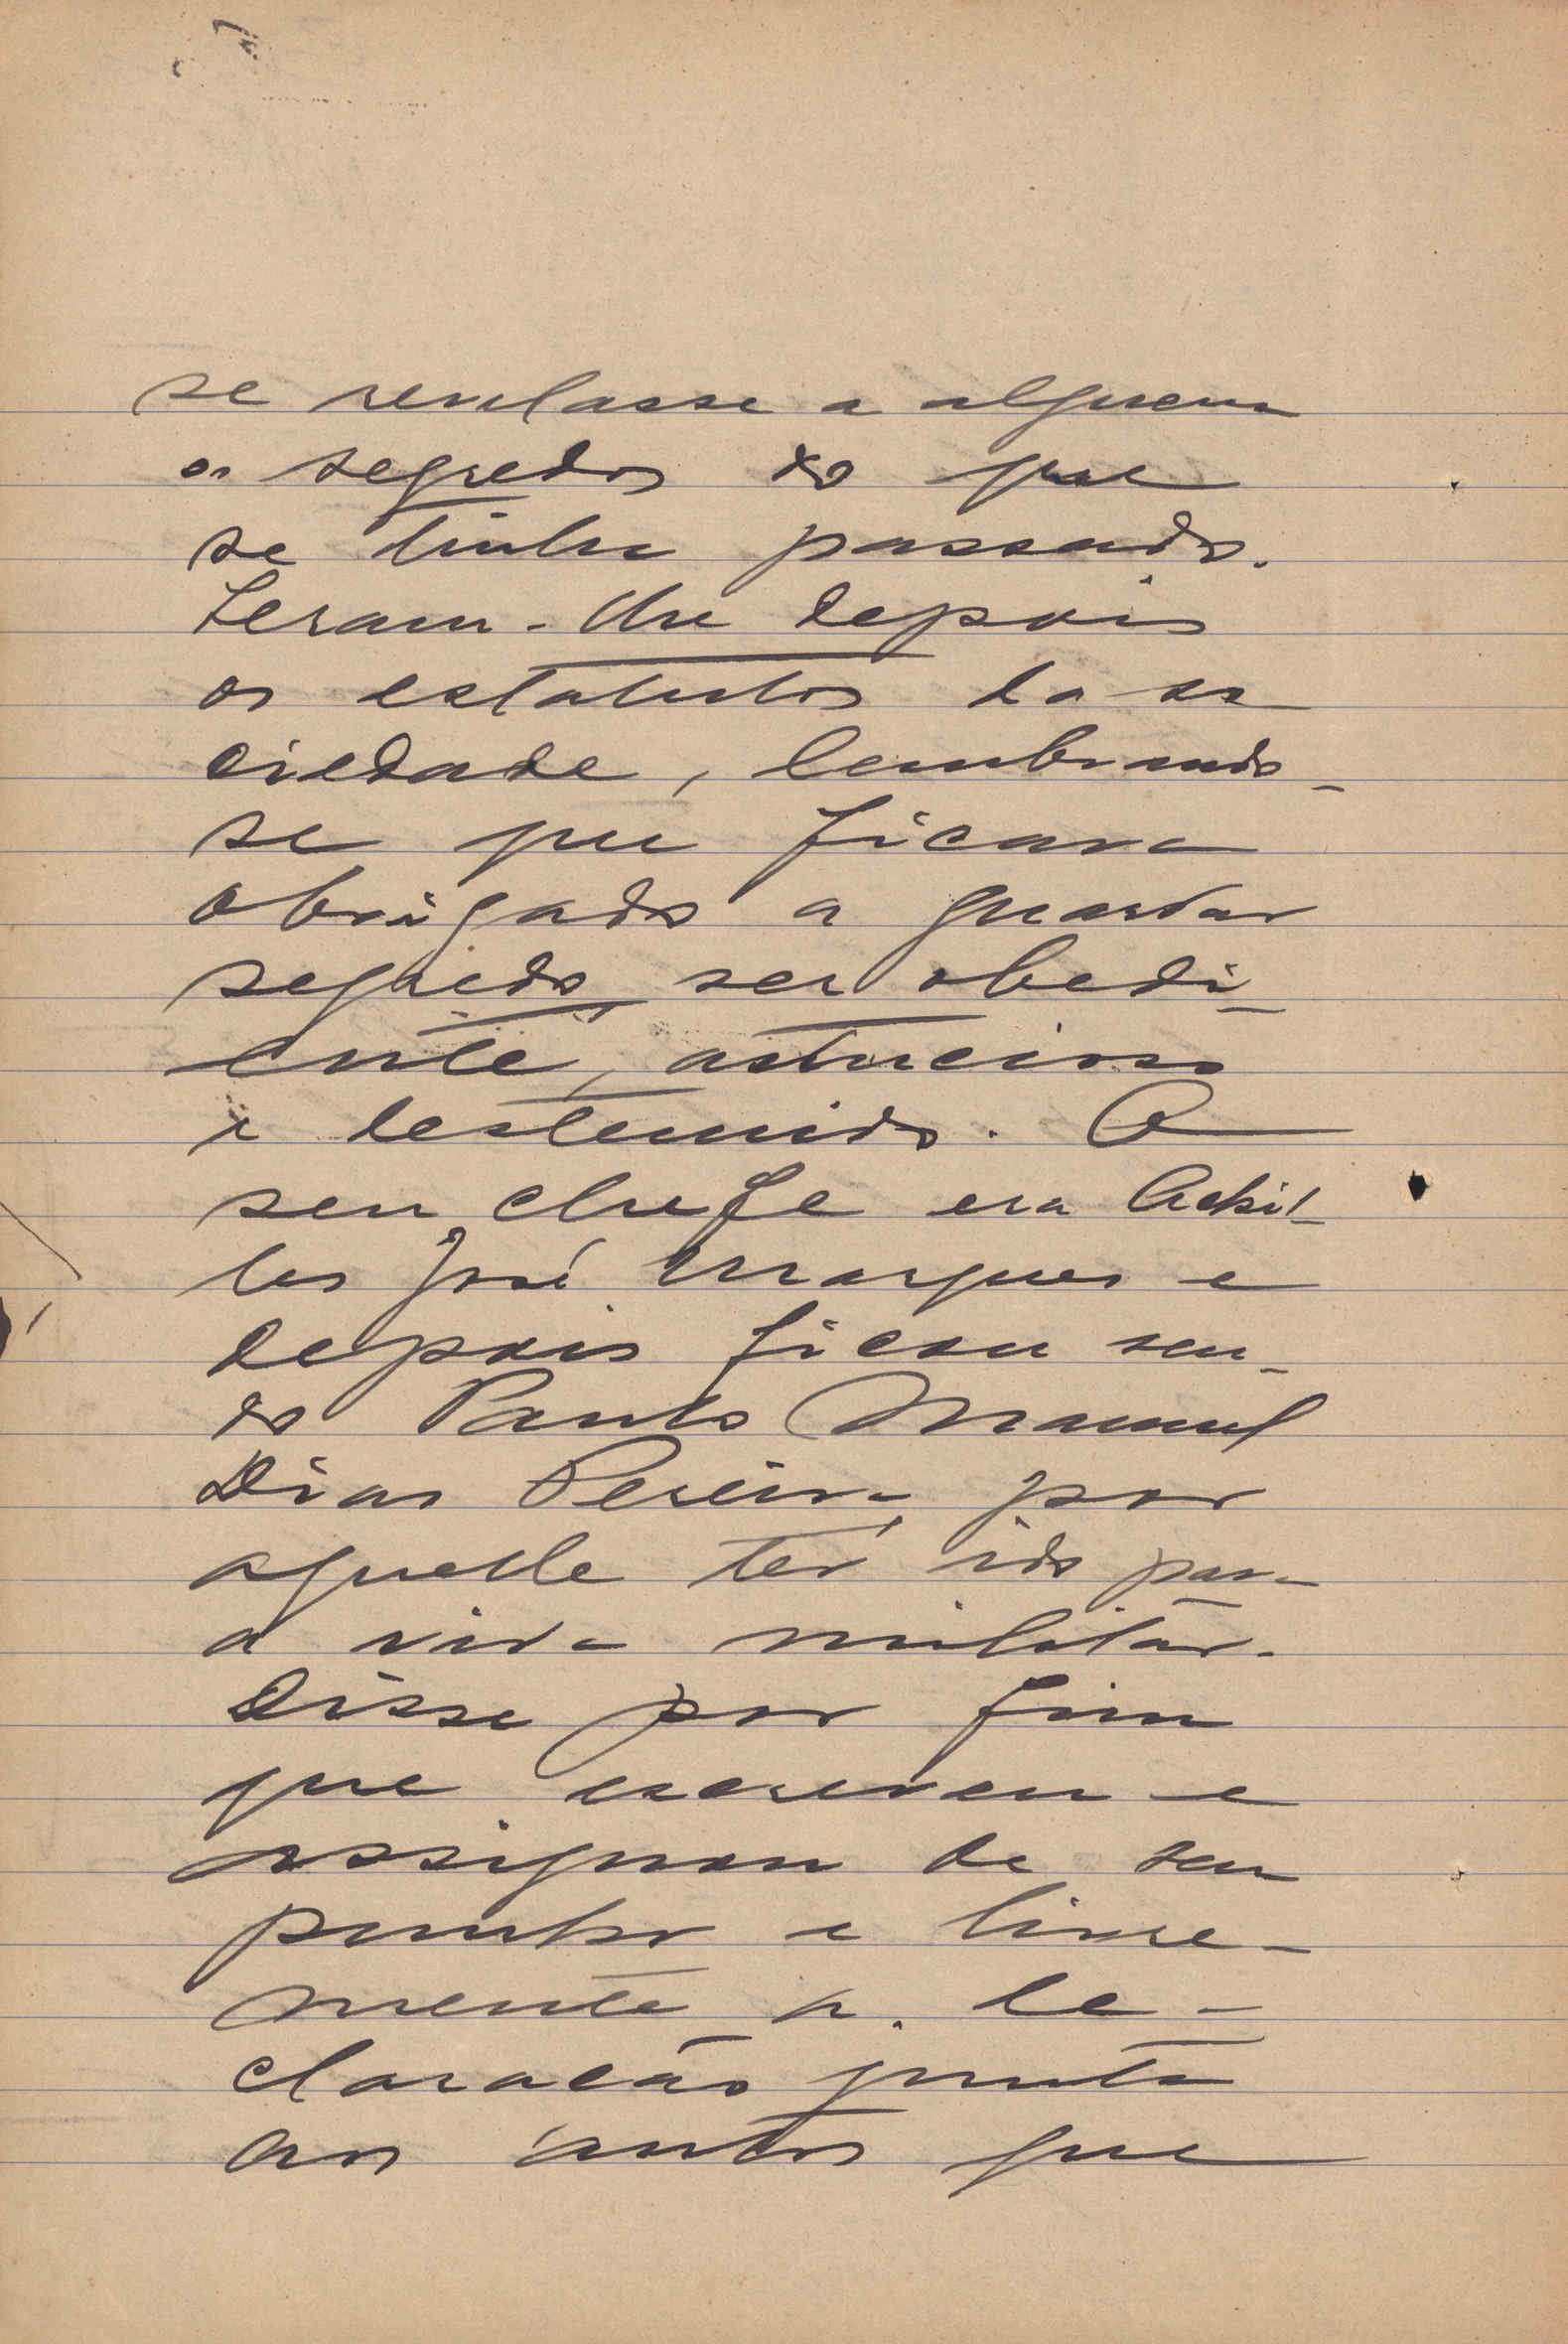 se revelasse a alguem
os segredos do que
se tinha passado.
Leram-lhe depois
os estatutos da so
ciedade, lembrando-
se que ficara
obrigado a guardar
segredo, ser obedi-
ente, astucioso
e destemido. O
seu chefe era Achil-
les José Marques e
depois ficou sen-
do Paulo Manuel
Dias Pereira, por
aquelle ter ido para
a vida militar.
Disse por fim
que escreveu e
assignou de seu
punho e livre-
mente a de-
claracão junta
aos autos que